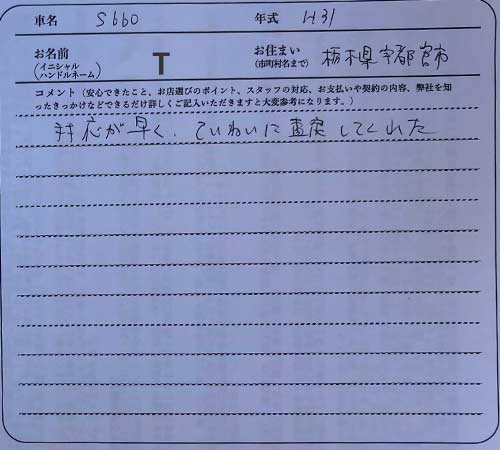 車名 S660 年式 H31
お名前 (イニシャル ハンドルネーム) T お住まい (市町村名まで) 栃木県宇都宮市
コメント(安心できたこと、お店選びのポイント、スタッフの対応、お支払いや契約の内容、弊社を知
ったきっかけなどできるだけ詳しくご記入いただきますと大変参考になります。)
対応が早く、ていねいに査定してくれた